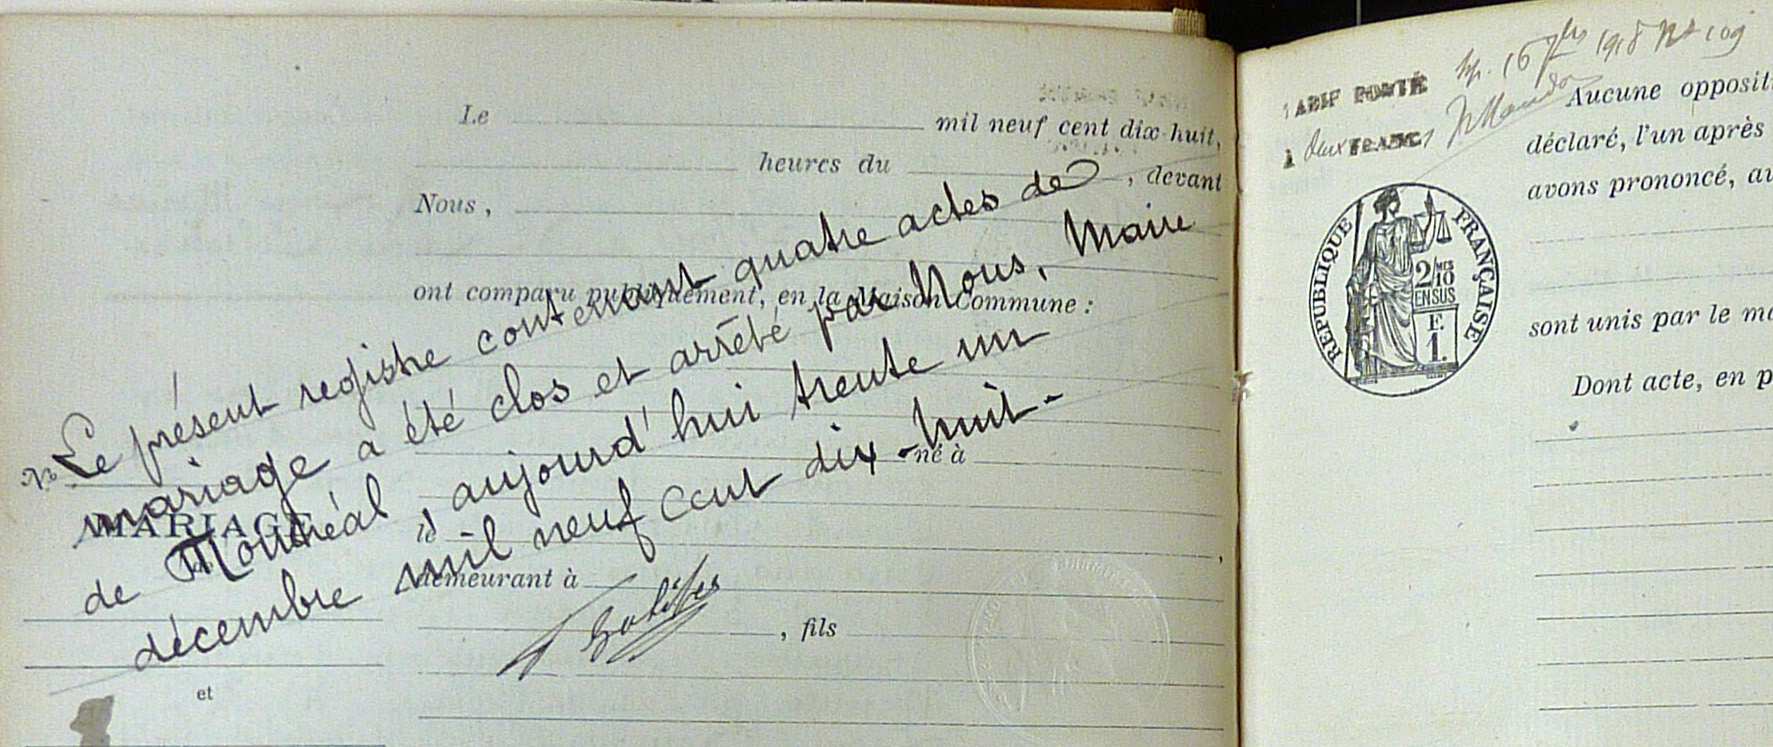 Le mil neuf cent dix-huit,
heures du , devant
Nous,
ont comparu publiquement, en la Maison Commune :
Le présent registre contenant quatre actes de
mariage a été clos et arrêté par Nous, Maire
de Montréal, aujourd'hui trente un
décembre mil neuf cent dix-huit.
No
MARIAGE
et
né à
le ,
demeurant à
, fils
16 1918 No 109
TARIF PORTÉ
à deux FRANCS
RÉPUBLIQUE FRANÇAISE
2/10 MES
EN SUS
F.
1.
Aucune oppositi
déclaré, l'un après
avons prononcé, au
sont unis par le ma
Dont acte, en p